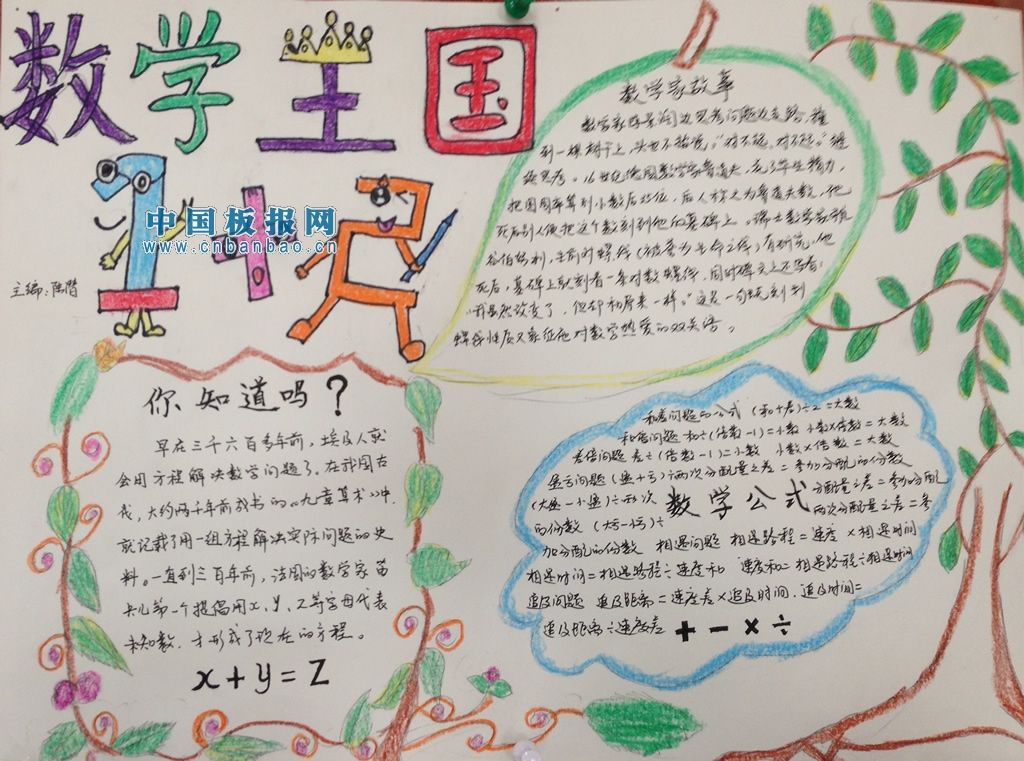 数学王国
中国板报网
www.cnbanbao.cn
主编:陈
数学家故事
数学家 边思考问题边走路,撞
到一棵树上,头也不抬说:"对不起,对不起。"继
续思考。16世纪德国数学家鲁道夫,花了毕生精力,
把圆周率算到小数后35位,后人称之为鲁道夫数,他
死后别人便把这个数刻到他的墓碑上。瑞士数学家雅
谷伯努利,生前对螺线(被誉为生命之线)有研究,他
死后,墓碑上就刻着一条对数螺线,同时碑文上还写着:
"我虽然改变了,但却和原来一样。"这是一句既刻划
螺线性质又象征他对数学热爱的双关语。
你知道吗?
早在三千六百多年前,埃及人就
会用方程解决数学问题了。在我国古
代,大约两千年前成书的《九章算术》中,
就记载了用一组方程解决实际问题的史
料。一直到三百年前,法国的数学家笛
卡儿第一个提倡用x、y、z等字母代表
未知数,才形成了现在的方程。
x+y=z
和差问题的公式 (和+差)÷2=大数
和倍问题 和÷(倍数-1)=小数 小数×倍数=大数
差倍问题 差÷(倍数-1)=小数 小数×倍数=大数
盈亏问题 (盈+亏)÷两次分配量之差=参加分配的份数
(大盈-小盈)÷两次 分配量之差=参加分配
数学公式
的份数 (大亏-小亏)÷ 两次分配量之差=参
加分配的份数 相遇问题 相遇路程=速度 ×相遇时间
相遇时间=相遇路程÷速度和 速度和=相遇路程÷相遇时间
追及问题 追及距离=速度差×追及时间.追及时间=
追及距离÷速度差 + - × ÷